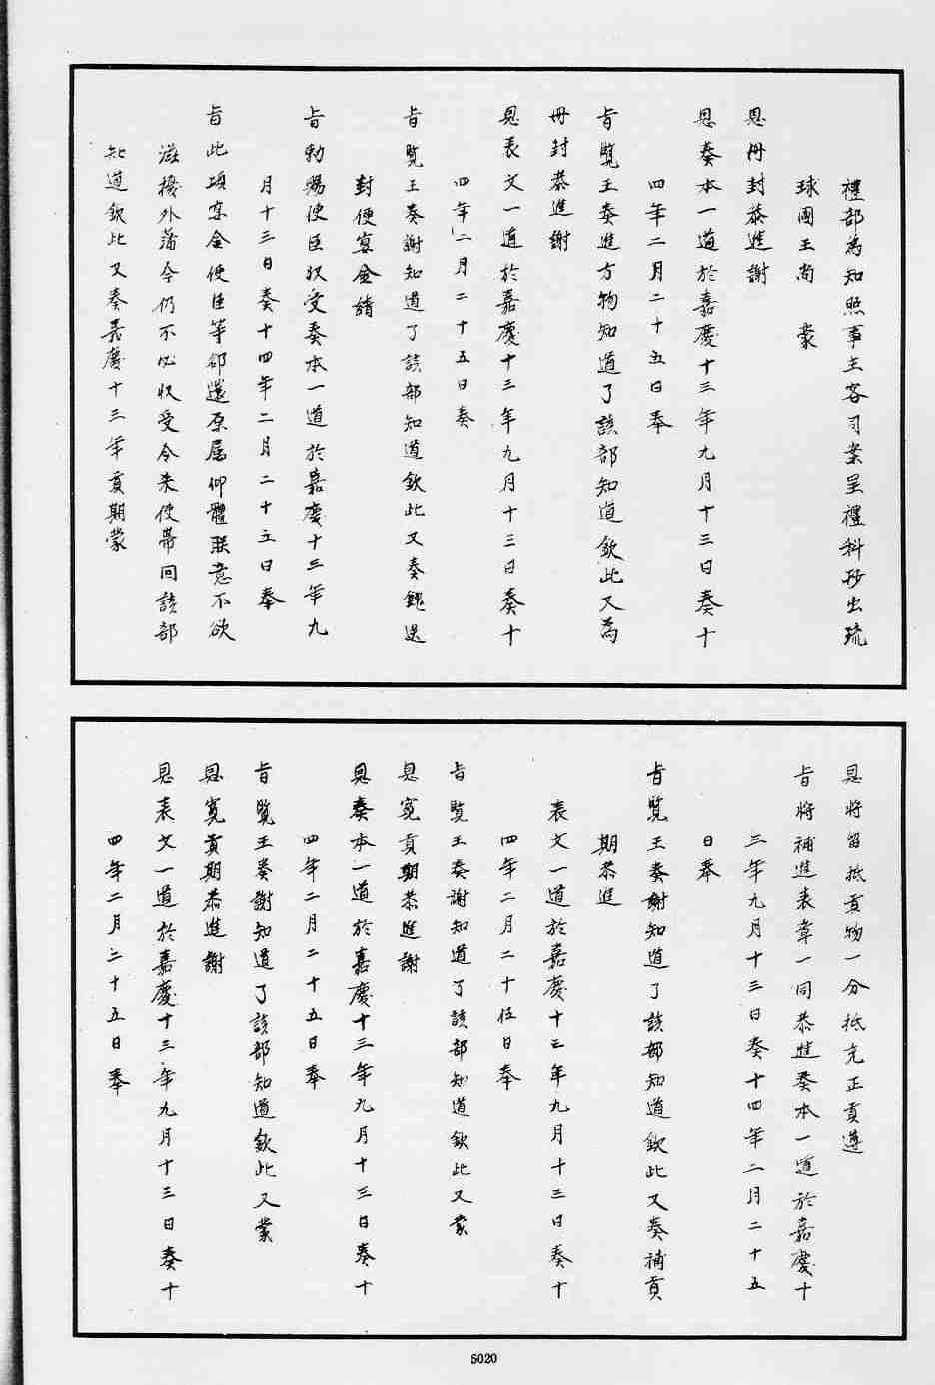 禮部為知照事主客司案呈禮科抄出琉
球國王尚　蒙
恩冊封恭進謝
恩奏本一道於嘉慶十三年九月十三日奏十
四年二月二十五日奉
旨覽王奏進方物知道了該部知道欽此又為
冊封恭進謝
恩表文一道於嘉慶十三年九月十三日奏十
四年二月二十五日奏
旨覽王奏謝知道了該部知道欽此又奏餽送
封使宴金請
旨勅賜使臣收受奏本一道於嘉慶十三年九
月十三日奏十四年二月二十五日奉
旨此項宴金使臣等卻還原屬仰體朕意不欲
滋擾外藩今仍不必收受令來使帶回該部
知道欽此又奏嘉慶十三年貢期蒙
恩將留抵貢物一分抵充正貢遵
旨將補進表章一同恭進奏本一道於嘉慶十
三年九月十三日奏十四年二月二十五
日奉
旨覽王奏謝知道了該部知道欽此又奏補貢
期恭進
表文一道於嘉慶十三年九月十三日奏十
四年二月二十伍日奉
旨覽王奏謝知道了該部知道欽此又蒙
恩寬貢期恭進謝
恩奏本一道於嘉慶十三年九月十三日奏十
四年二月二十五日奉
旨覽王奏謝知道了該部知道欽此又蒙
恩寬貢期恭進謝
恩表文一道於嘉慶十三年九月十三日奏十
四年二月二十五日奉
5020